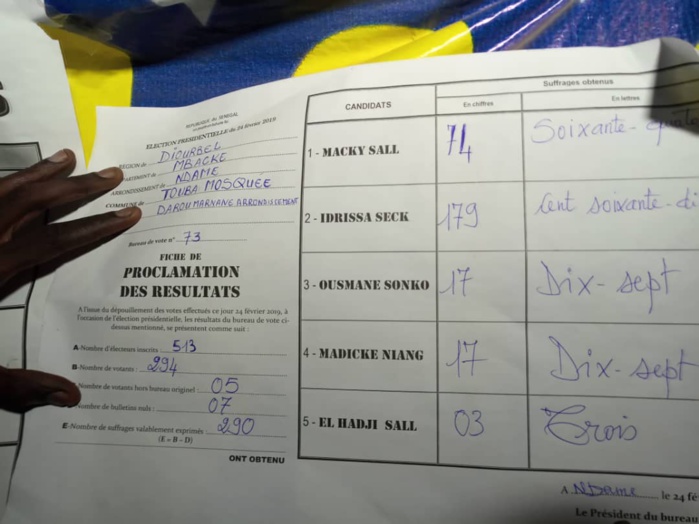 REPUBLIQUE DU SENEGAL
ELECTION PRESIDENTIELLE du 24 février 2019
REGION de DIOURBEL
MBACKE
ARRONDISSEMENT de NDAME
COMMUNE de TOUBA MOSQUEE
DAROU MARNANE ARRONDISSEMENT
Bureau de vote n° 73
FICHE DE
PROCLAMATION
DES RESULTATS
A l'issue du dépouillement des votes effectués ce jour 24 février 2019, à
l'occasion de l'élection présidentielle, les résultats du bureau de vote ci-
dessus mentionné, se présentent comme suit :
A-Nombre d'électeurs inscrits 513
B-Nombre de votants : 294
Nombre de votants hors bureau originel : 05
Nombre de bulletin nuls : 07
E-Nombre de suffrages valablement exprimés 290
(E = B - D)
ONT OBTENU
CANDIDATS
Suffrages obtenus
En chiffres
En lettres
1 - MACKY SALL 74 Soixante-quato
2 - IDRISSA SECK 179 Cent soixante-di
3 - OUSMANE SONKO 17 Dix-sept
4 - MADICKE NIANG 17 Dix-sept
5 - EL HADJI SALL 03 Trois
A NDAME le 24 fé
Le Président du bureau